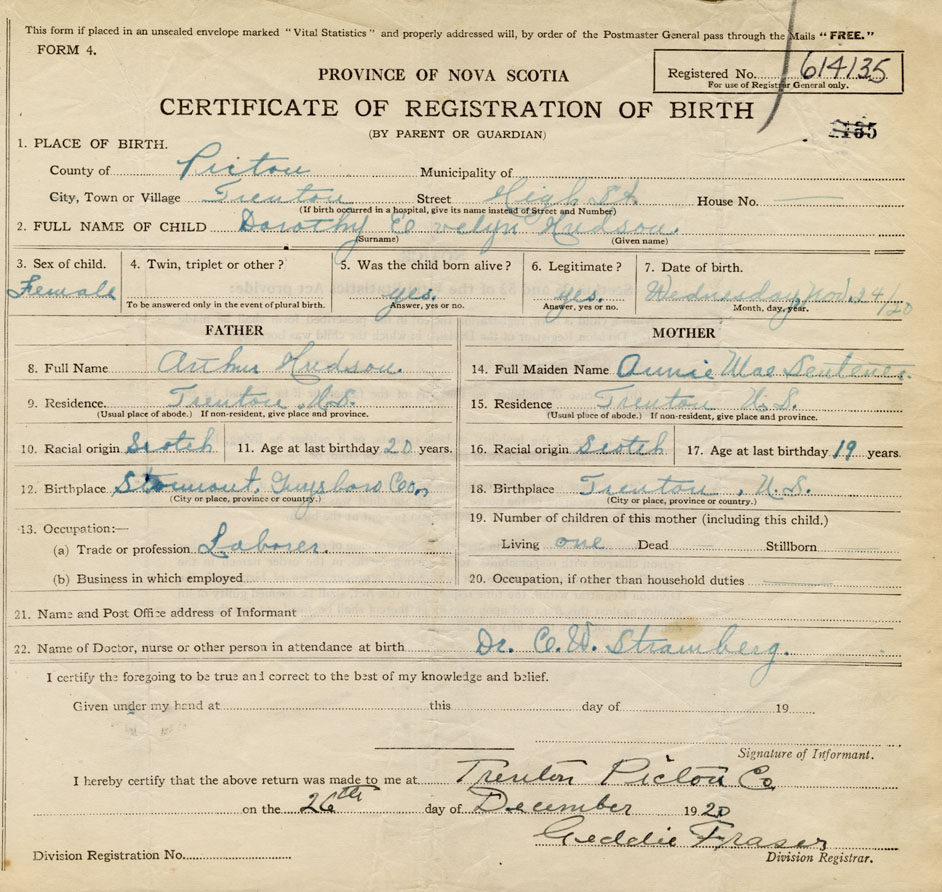 This form if placed in an unsealed envelope marked "Vital Statistics" and properly addressed will, by order of the Postmaster General pass through the Mails "FREE."
FORM 4.
PROVINCE OF NOVA SCOTIA
Registered No. 614135
For use of Registrar General only.
CERTIFICATE OF REGISTRATION OF BIRTH
(BY PARENT OR GUARDIAN)
1. PLACE OF BIRTH.
County of Pictou Municipality of
City, Town or Village Trenton Street High St House No.
(If birth occurred in a hospital, give its name instead of Street and Number)
2. FULL NAME OF CHILD Dorothy Evelyn Hudson.
(Surname) (Given name)
3. Sex of child. 4. Twin, triplet or other? 5. Was the child born alive? 6. Legitimate? 7. Date of birth.
Female yes. yes. Wednesday, Nov. 24/20
To be answered only in the event of plural birth. Answer, yes or no. Answer, yes or no. Month, day, year.
FATHER MOTHER
8. Full Name Arthur Hudson. 14. Full Maiden Name Annie Mae
9. Residence. Trenton, N.S. 15. Residence Trenton N.S.
(Usual place of abode.) If non-resident, give place and province. (Usual place of abode.) If non-resident, give place and province.
10. Racial origin Scotch 11. Age at last birthday 20 years. 16. Racial origin Scotch 17. Age at last birthday 19 years.
12. Birthplace Stormont, Guysboro Co. 18. Birthplace Trenton, N.S.
(City or place, province or country.) (City or place, province or country.)
13. Occupation:— 19. Number of children of this mother (including this child.)
(a) Trade or profession Laborer. Living one Dead Stillborn
(b) Business in which employed 20. Occupation, if other than household duties
21. Name and Post Office address of Informant
22. Name of Doctor, nurse or other person in attendance at birth Dr. C. W. Stramberg.
I certify the foregoing to be true and correct to the best of my knowledge and belief.
Given under my hand at this day of 19
Signature of Informant.
I hereby certify that the above return was made to me at Trenton Pictou Co
on the 26th day of December 1920
Geddie Fraser
Division Registration No. Division Registrar.